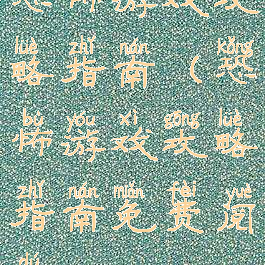 lüè zhǐ nán kǒng
略指南（恐
bù yóu xì gōng lüè
怖游戏攻略
zhǐ nán miǎn fèi yuè
指南免费阅